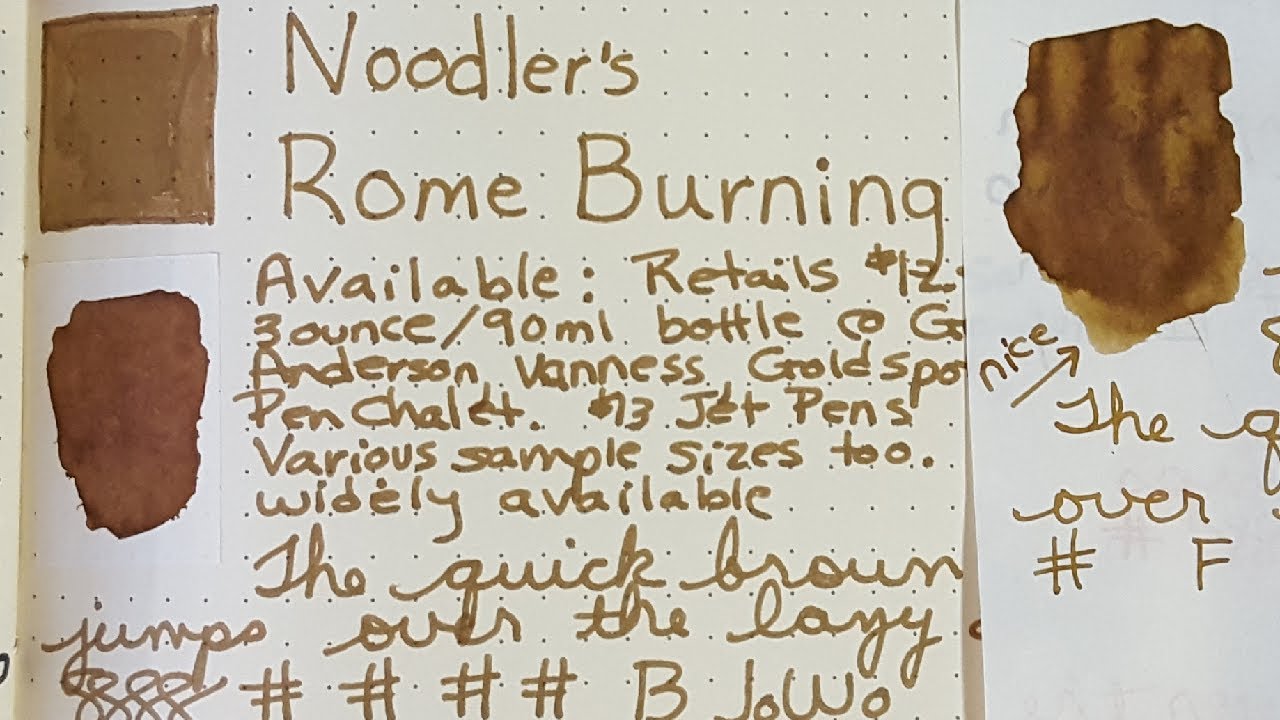 Noodler's
Rome Burning
Available: Retails $12.
3 ounce/90ml bottle @ Go
Anderson Vanness Goldspo
Pen Chalet. $13 Jet Pens
Various sample sizes too.
widely available
The quick brown
jumps over the lazy
# # # # B JoWo
nice
The q
over
# F